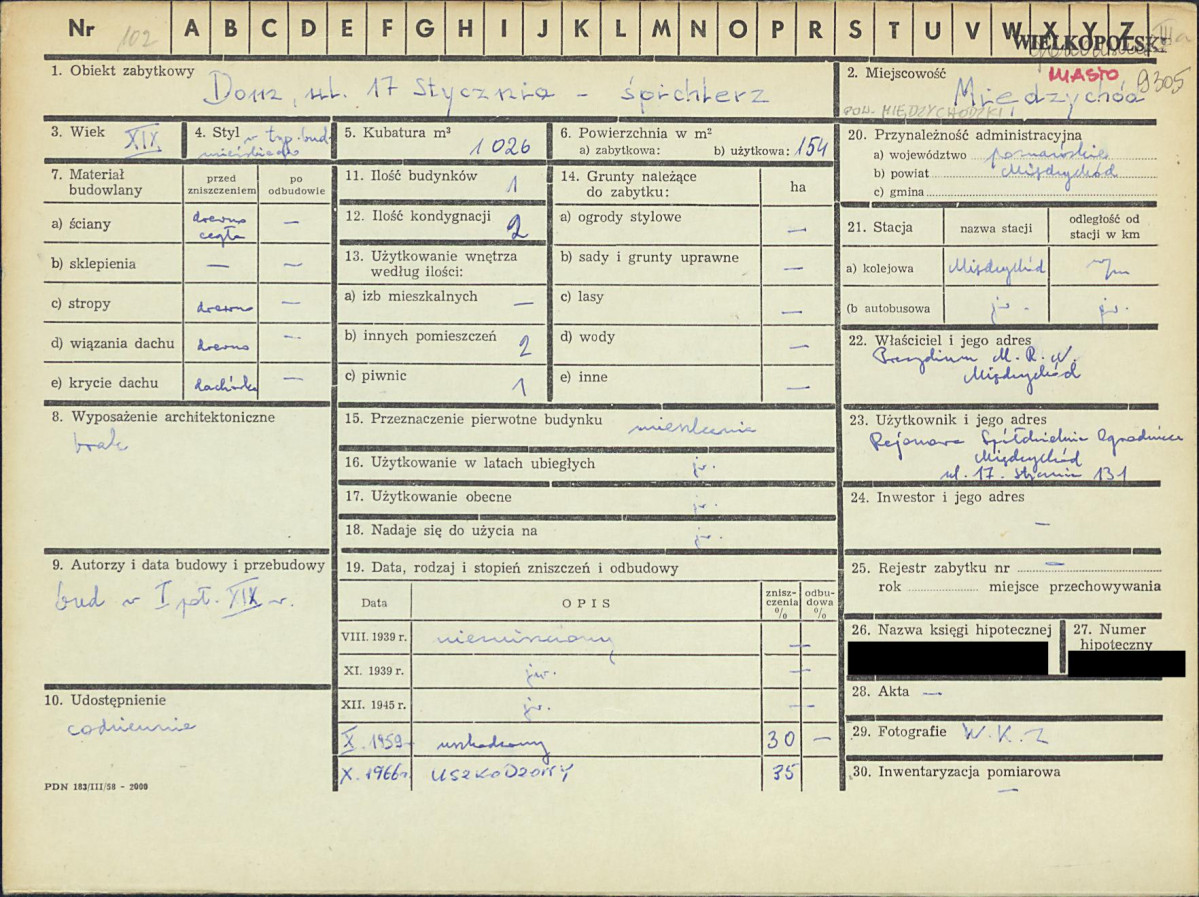 Nr 102 A B C D E F G H I J K L M N O P R S T U V W X Y Z
WIELKOPOLSKI
1. Obiekt zabytkowy
Dom, ul. 17 Stycznia – śpichlerz
2. Miejscowość
MIASTO 9305
Międzychód
POW. MIĘDZYCHODZKI
3. Wiek
XIX
4. Styl w typ. bud.
5. Kubatura m³
1026
6. Powierzchnia w m²
a) zabytkowa: b) użytkowa: 154
7. Materiał budowlany
przed zniszczeniem
po odbudowie
a) ściany drewno cegła —
b) sklepienia — —
c) stropy drewno —
d) wiązania dachu drewno —
e) krycie dachu dachówka —
8. Wyposażenie architektoniczne
brak
9. Autorzy i data budowy i przebudowy
bud w I poł. XIX w.
10. Udostępnienie
codziennie
PDN 183/III/58 - 2000
11. Ilość budynków 1
12. Ilość kondygnacji 2
13. Użytkowanie wnętrza według ilości:
a) izb mieszkalnych —
b) innych pomieszczeń 2
c) piwnic 1
14. Grunty należące do zabytku:
ha
a) ogrody stylowe —
b) sady i grunty uprawne —
c) lasy —
d) wody —
e) inne —
15. Przeznaczenie pierwotne budynku
16. Użytkowanie w latach ubiegłych jw.
17. Użytkowanie obecne jw.
18. Nadaje się do użycia na jw.
19. Data, rodzaj i stopień zniszczeń i odbudowy
Data
OPIS
zniszczenia %
odbudowa %
VIII. 1939 r. niezniszczony —
XI. 1939 r. jw. —
XII. 1945 r. jw. —
X. 1959 uszkodzony 30 —
X. 1966 r USZKODZONY 35
20. Przynależność administracyjna
a) województwo poznańskie
b) powiat Międzychód
c) gmina
21. Stacja
nazwa stacji
odległość od stacji w km
a) kolejowa Międzychód
(b autobusowa jw. jw.
22. Właściciel i jego adres
Prezydium M. R. N.
Międzychód
23. Użytkownik i jego adres
Rejonowa Spółdzielnia Ogrodnicza
Międzychód
ul. 17. Stycznia 131
24. Inwestor i jego adres
—
25. Rejestr zabytku nr —
rok miejsce przechowywania
26. Nazwa księgi hipotecznej
27. Numer hipoteczny
28. Akta —
29. Fotografie W. K. Z
30. Inwentaryzacja pomiarowa
—